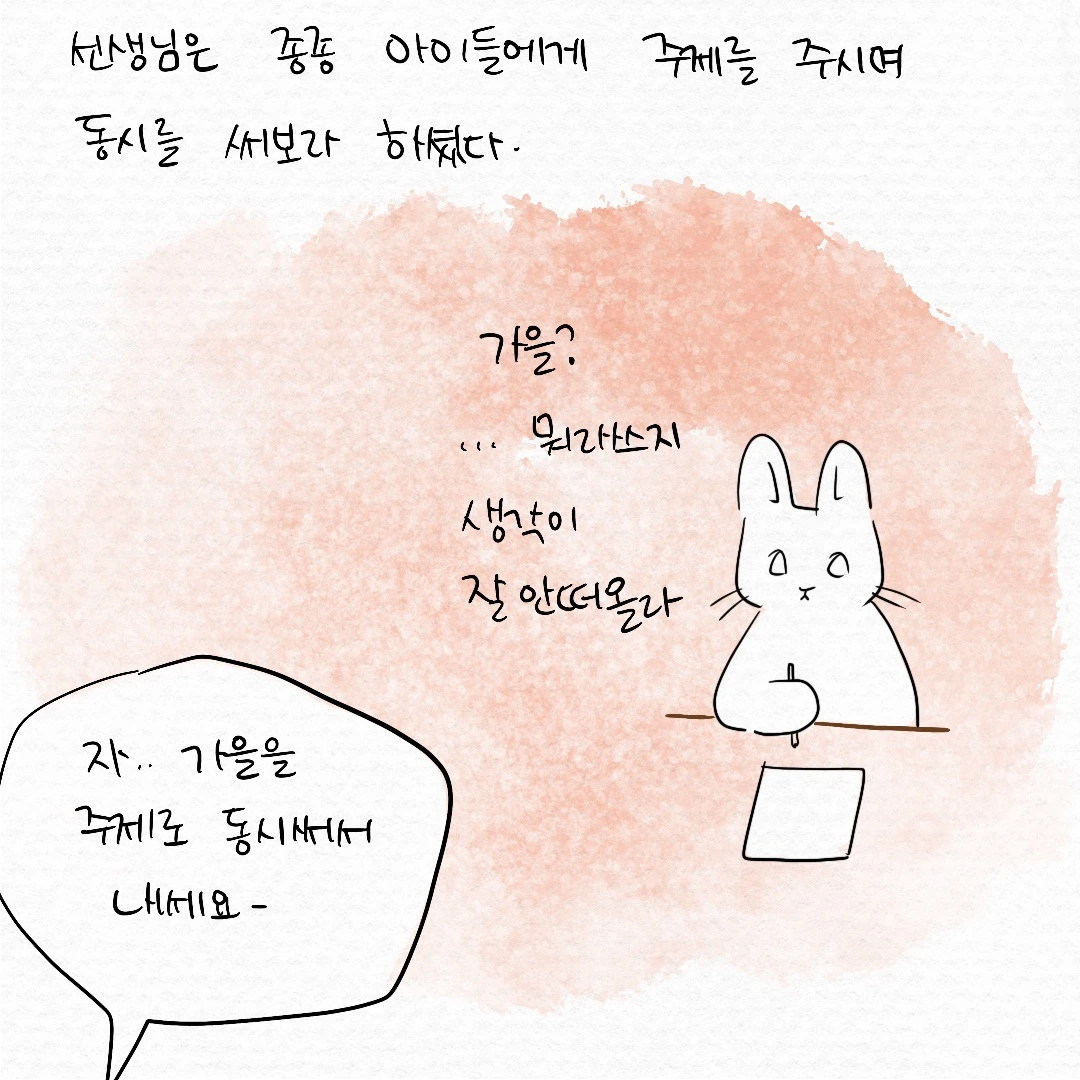 선생님은 종종 아이들에게 주제를 주시며
동시를 써보라 하셨다.
가을?
... 뭐라쓰지
생각이
잘 안떠올라
자.. 가을을
주제로 동시써서
내세요-